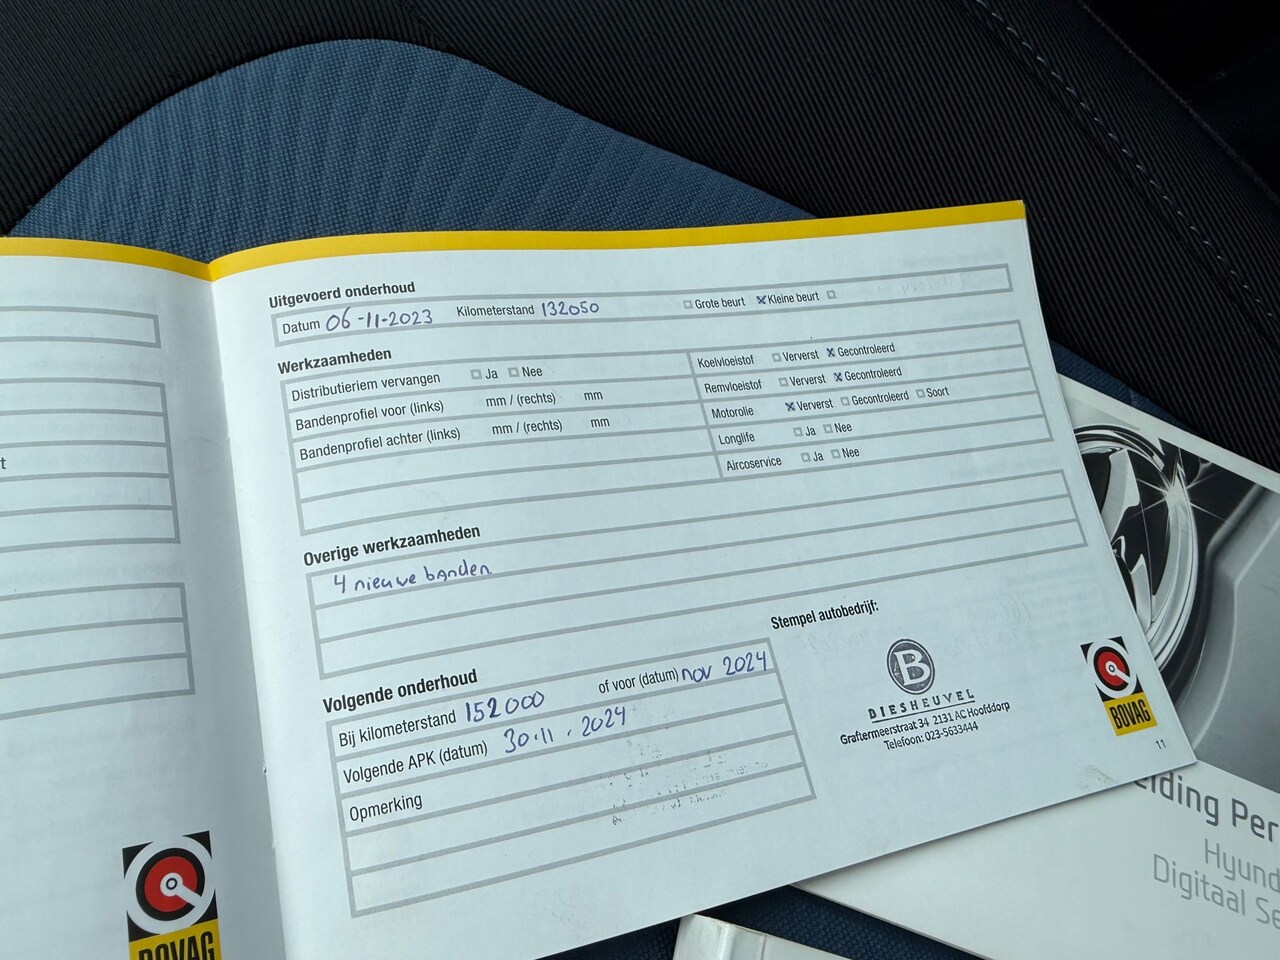 Uitgevoerd onderhoud
Datum 06-11-2023 Kilometerstand 132050 Grote beurt Kleine beurt
Werkzaamheden
Distributieriem vervangen Ja Nee
Bandenprofiel voor (links) mm / (rechts) mm
Bandenprofiel achter (links) mm / (rechts) mm
Koelvloeistof Ververst Gecontroleerd
Remvloeistof Ververst Gecontroleerd
Motorolie Ververst Gecontroleerd Soort
Longlife Ja Nee
Aircoservice Ja Nee
Overige werkzaamheden
4 nieuwe banden
Volgende onderhoud
Bij kilometerstand 152000 of voor (datum) nov 2024
Volgende APK (datum) 30.11.2024
Opmerking
Stempel autobedrijf:
B
BIESHEUVEL
Graftermeerstraat 34 2131 AC Hoofddorp
Telefoon: 023-5633444
BOVAG
11
t
BOVAG
Digitaal